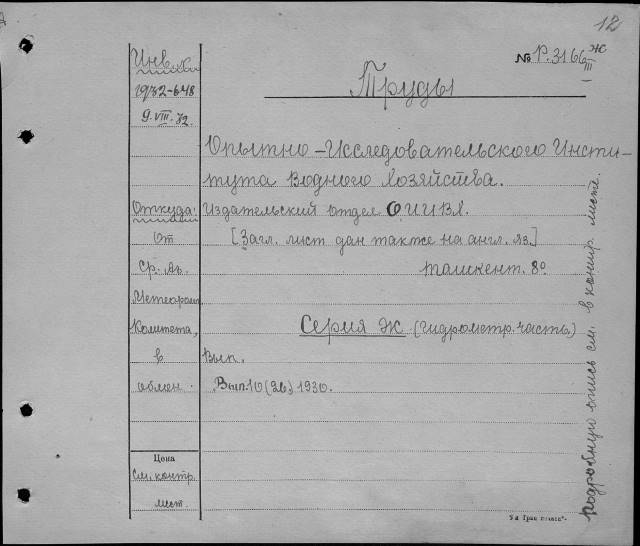 12
Инв. №
№ Р.3166 ж III
1932-648
Труды
9.VIII.32.
Опытно-Исследовательского Инсти-
тута Водного Хозяйства.
Откуда:
Издательский отдел ОИИВХ.
От
[Загл. лист дан также на англ. яз.]
Ср. Аз.
Ташкент. 8°
Метеорол
Комитета,
Серия Ж (гидрометр. часть)
в
Вып.
обмен.
Вып. 10 (26) 1930.
Цена
См. контр.
лист.
подробную опись см. в контр. листе.